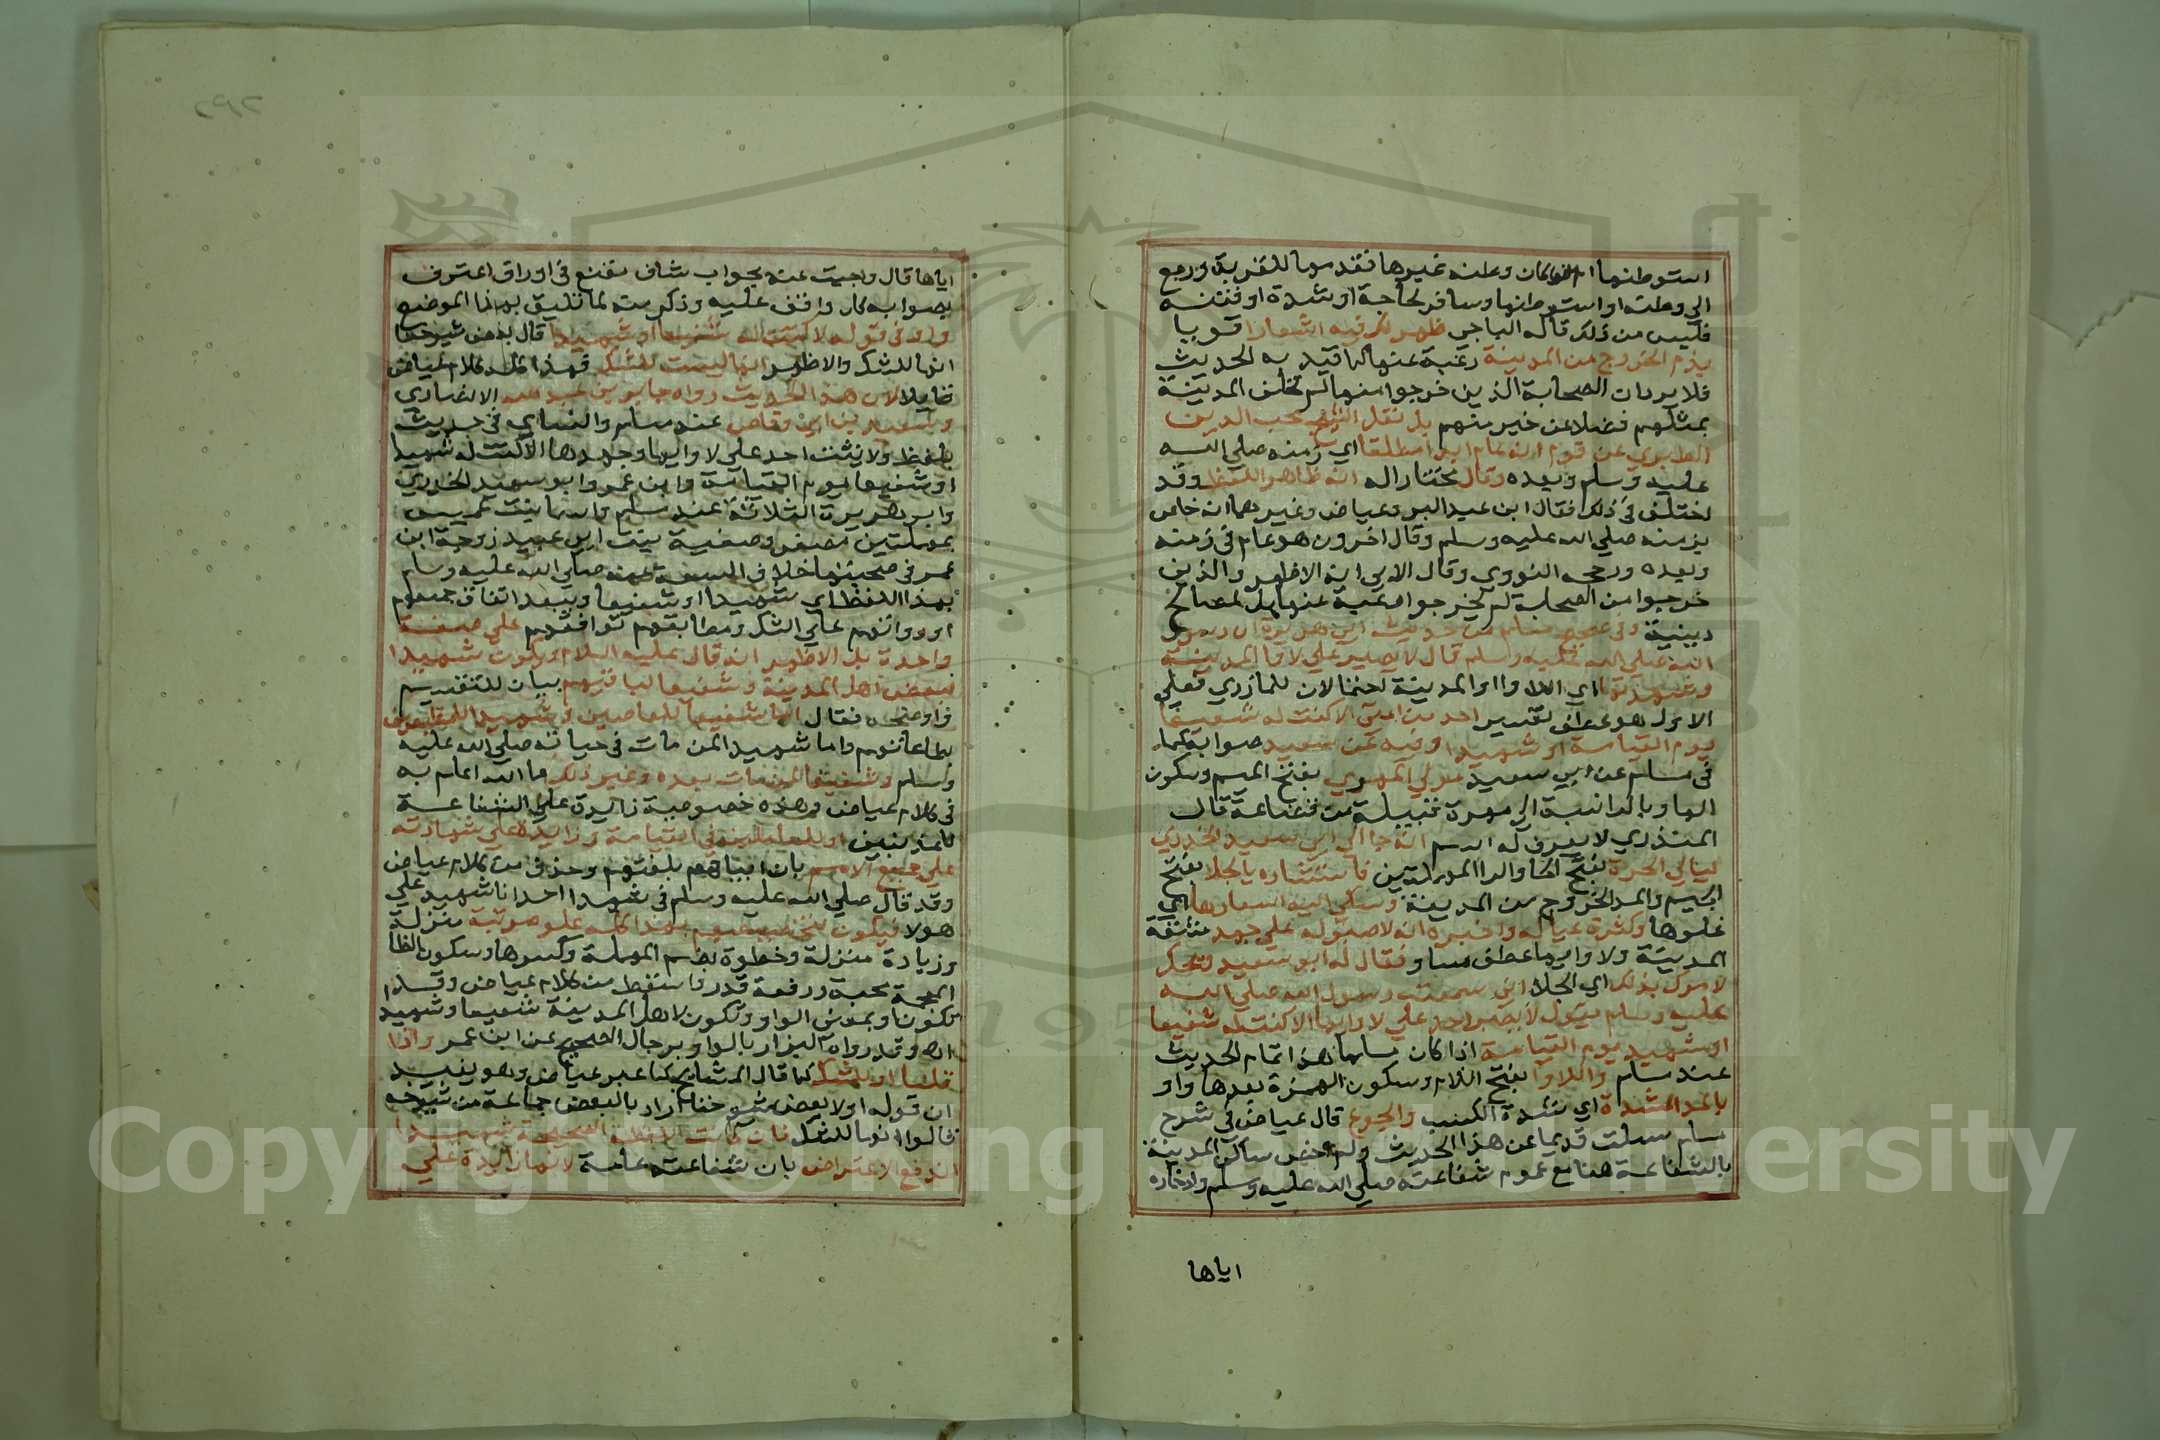 استوطنها اما من كان وطنه غيرها فقدمها للقربة ورجع
الى وطنه او استوطنها وسافر لحاجة او شدة او فتنة
فليس من ذلك قاله الباجي ظهر لك فيه اشعارا قويا
بذم الخروج من المدينة رغبة عنها كما قيد به الحديث
فلا يرد ان الصحابة الذين خرجوا منها لم تخلف المدينة
بمثلهم فضلا عن خير منهم بل نقل الشيخ محب الدين
الطبري عن قوم انه عام ابدا مطلقا اي زمنه صلي الله
عليه وسلم وبعده وقال مختارا له انه ظاهر اللفظ وقد
اختلف في ذلك فقال ابن عبد البر وعياض وغيرهما انه خاص
بزمنه صلي الله عليه وسلم وقال اخرون هو عام في زمنه
وبعده ورجحه النووي وقال الابي انه الاظهر والذين
خرجوا من الصحابة لم يخرجوا رغبة عنها بل لمصالح
دينية وفي صحيح مسلم من حديث ابي هريرة ان رسول
الله صلي الله عليه وسلم قال لا يصبر علي لاوا المدينة
وشدتها اي اللاوا او المدينة احتمالان للمازري فعلي
الاول هو عطف تفسير احد من امتي الا كنت له شفيعا
يوم القيامة او شهيدا وفيه عن سعيد صوابه كما
في مسلم عن ابي سعيد مولي المهري بفتح الميم وسكون
الها وبالرا نسبة الي مهرة قبيلة من قضاعة قال
المنذري لا يعرف له اسم انه جا الي ابي سعيد الخدري
ليالي الحرة بفتح الحا والرا المهملتين فاستشاره بالجلا بفتح
الجيم والمد الخروج من المدينة وشكي اليه اسعارها اي
غلوها وكثرة عياله واخبره انه لا صبر له علي جهد مشقة
المدينة ولاوايها عطف مساو فقال له ابو سعيد ويحك
لا امرك بذلك اي الجلا اني سمعت رسول الله صلي الله
عليه وسلم يقول لا يصبر احد علي لاوايها الا كنت له شفيعا
او شهيد يوم القيامة اذا كان مسلما هذا تمام الحديث
عند مسلم واللاوا بفتح اللام وسكون الهمزة بعدها واو
بالمد الشدة اي شدة الكسب والجوع قال عياض في شرح
مسلم سيلت قديما عن هذا الحديث ولم خص ساكن المدينة
بالشفاعة هنا مع عموم شفاعته صلي الله عليه وسلم وادخاره
اياها
اياها قال واجبت عنه بجواب شاف مقنع في اوراق اعترف
بصوابه كل واقف عليه وذكرت لما تليق بهذا الموضع
واو في قوله لا كنت له شفيعا او شهيدا قال بعض شيوخنا
انها للشك والاظهر انها ليست للشك فهذا كله كلام عياض
قايلا لان هذا الحديث رواه جابر بن عبد الله الانصاري
وسعد بن ابي وقاص عند مسلم والنساي في حديث
بلفظ ولا يثبت احد علي لاوايها وجهدها الا كنت له شهيدا
او شفيعا يوم القيامة وابن عمر وابو سعيد الخدري
وابو هريرة الثلاثة عند مسلم واسما بنت عميس
بمهملتين مصغر وصفية بنت ابي عبيد زوجة ابن
عمر في صحبتها خلاف السبعة عنه صلي الله عليه وسلم
بهذا اللفظ اي شهيدا او شفيعا ويبعد اتفاق جميعهم
او رواتهم علي الشك ومطابقتهم توافقهم علي صيغة
واحدة بل الاظهر انه قال عليه السلام ويكون شهيدا
لبعض اهل المدينة وشفيعا لباقيهم بيان للتقسيم
واوضحه فقال اما شفيعا للعاصين وشهيدا للطائعين
بطاعاتهم واما شهيدا لمن مات في حياته صلي الله عليه
وسلم وشفيعا لمن مات بعده وغير ذلك مما الله اعلم به
في كلام عياض وهذه خصوصية زايدة علي الشفاعة
للمذنبين او للعالمين في القيامة وزايدة علي شهادته
علي جميع الامم بان انبياهم بلغتهم وحذف من كلام عياض
وقد قال صلي الله عليه وسلم في شهدا احد انا شهيد علي
هولا فيكون تخصيصهم بهذا كله علو مرتبة منزلة
وزيادة منزلة وحظوة بضم المهملة وكسرها وسكون الظا
المعجمة محبة ورفعة قدر ما سقط من كلام عياض وقد
تكون او بمعني الواو وتكون لاهل المدينة شفيعا وشهيدا
اه وقد رواه البزار بالواو برجال الصحيح عن ابن عمر واذا
قلنا او للشك كما قال المشايخ كما عبر عياض وهو يفيد
ان قوله اولا بعض شيوخنا اراد بالبعض جماعة من شيوخه
قالوا انها للشك فان كانت لفظة الصحيحة شهيدا
اندفع الاعتراض بان شفاعته عامة لانها زايدة علي
Copyright © King Saud University